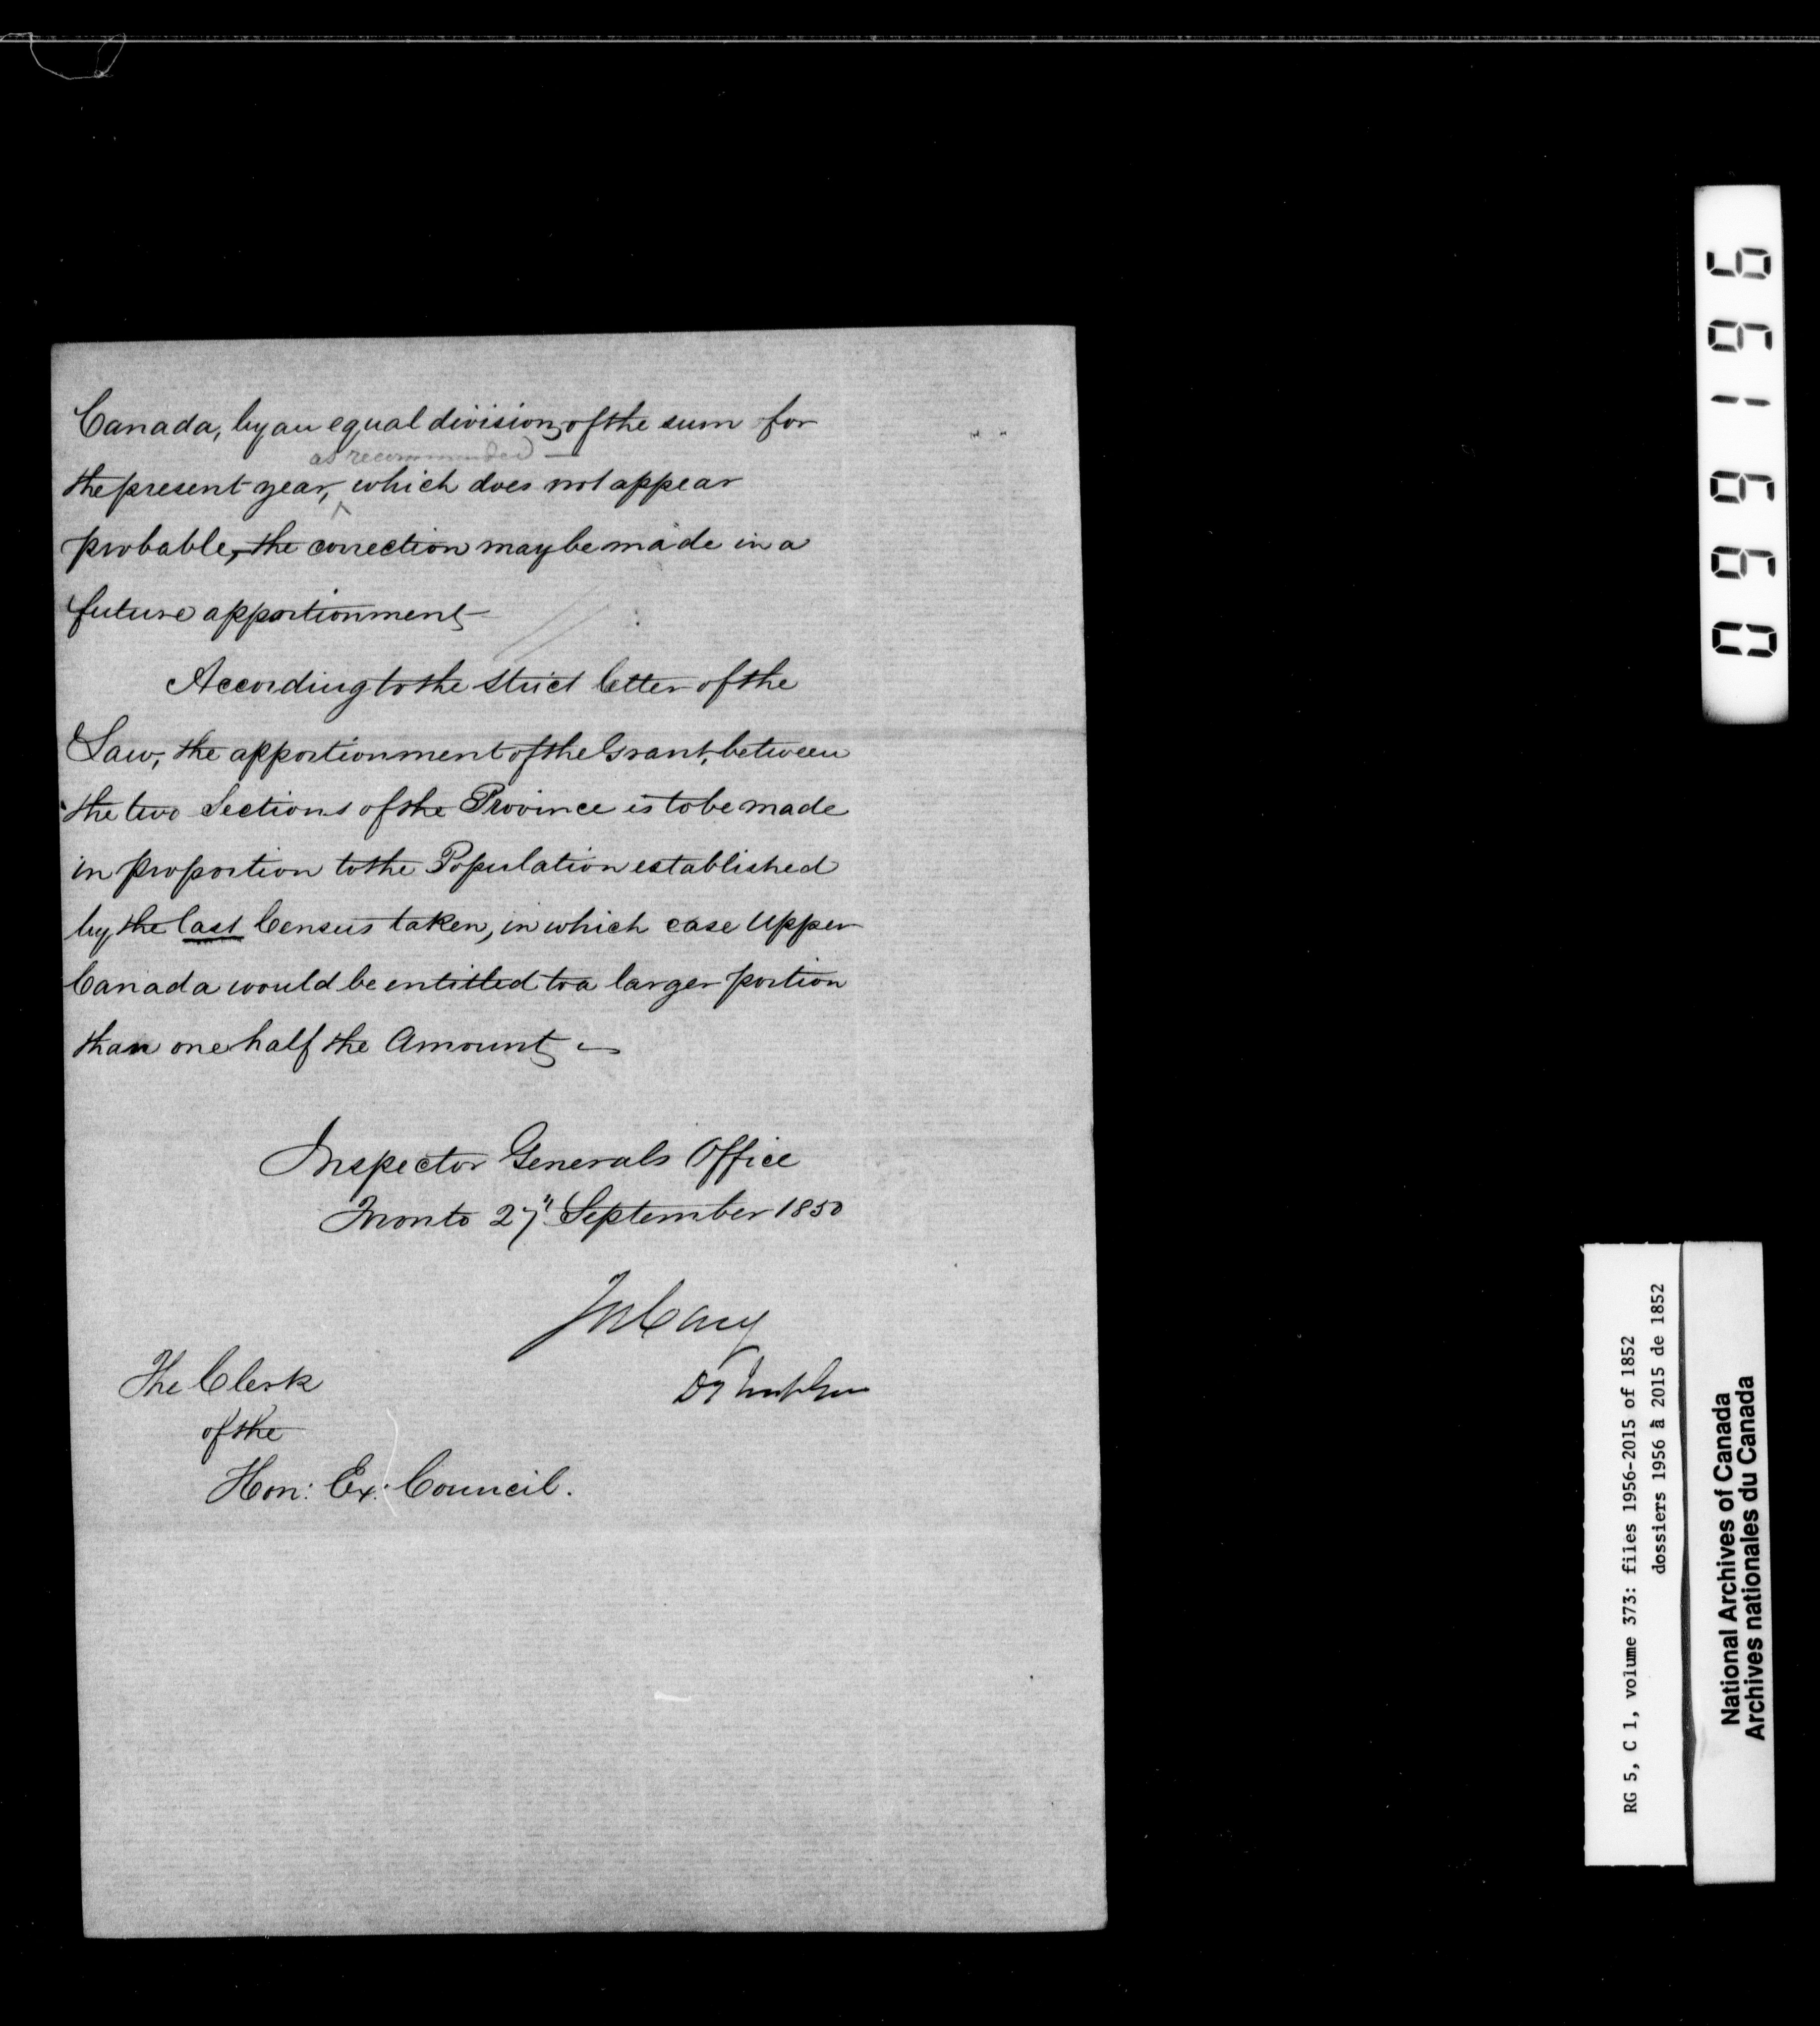 Canada, by an equal division, of the sum for
as recommended
the present year, which does not appear
probable, the correction may be made in a
future apportionment
According to the strict letter of the
Law, the apportionment of the Grant, between
the two Sections of the Province is to be made
in proportion to the Population established
by the last Census taken, in which case Upper
Canada would be entitled to a larger portion
than one half the Amount,
Inspector Generals Office
Toronto 27" September 1850
Jos Cary
The Clerk
of the
Hon: Ex: Council.
096196
RG 5, C 1, volume 373: files 1956-2015 of 1852
dossiers 1956 à 2015 de 1852
National Archives of Canada
Archives nationales du Canada